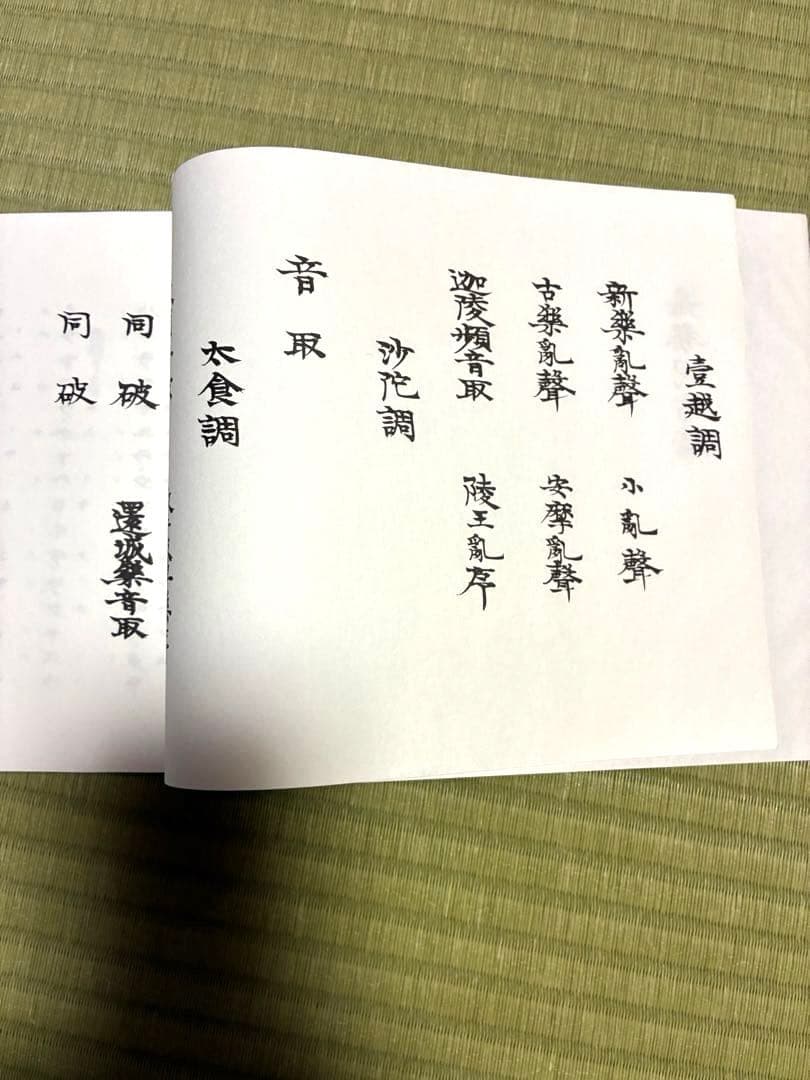 壹越調
新樂亂聲　小亂聲
古樂亂聲　安摩亂聲
迦陵頻音取　陵王亂序
沙陀調
音取
太食調
同破　還城樂音取
同破